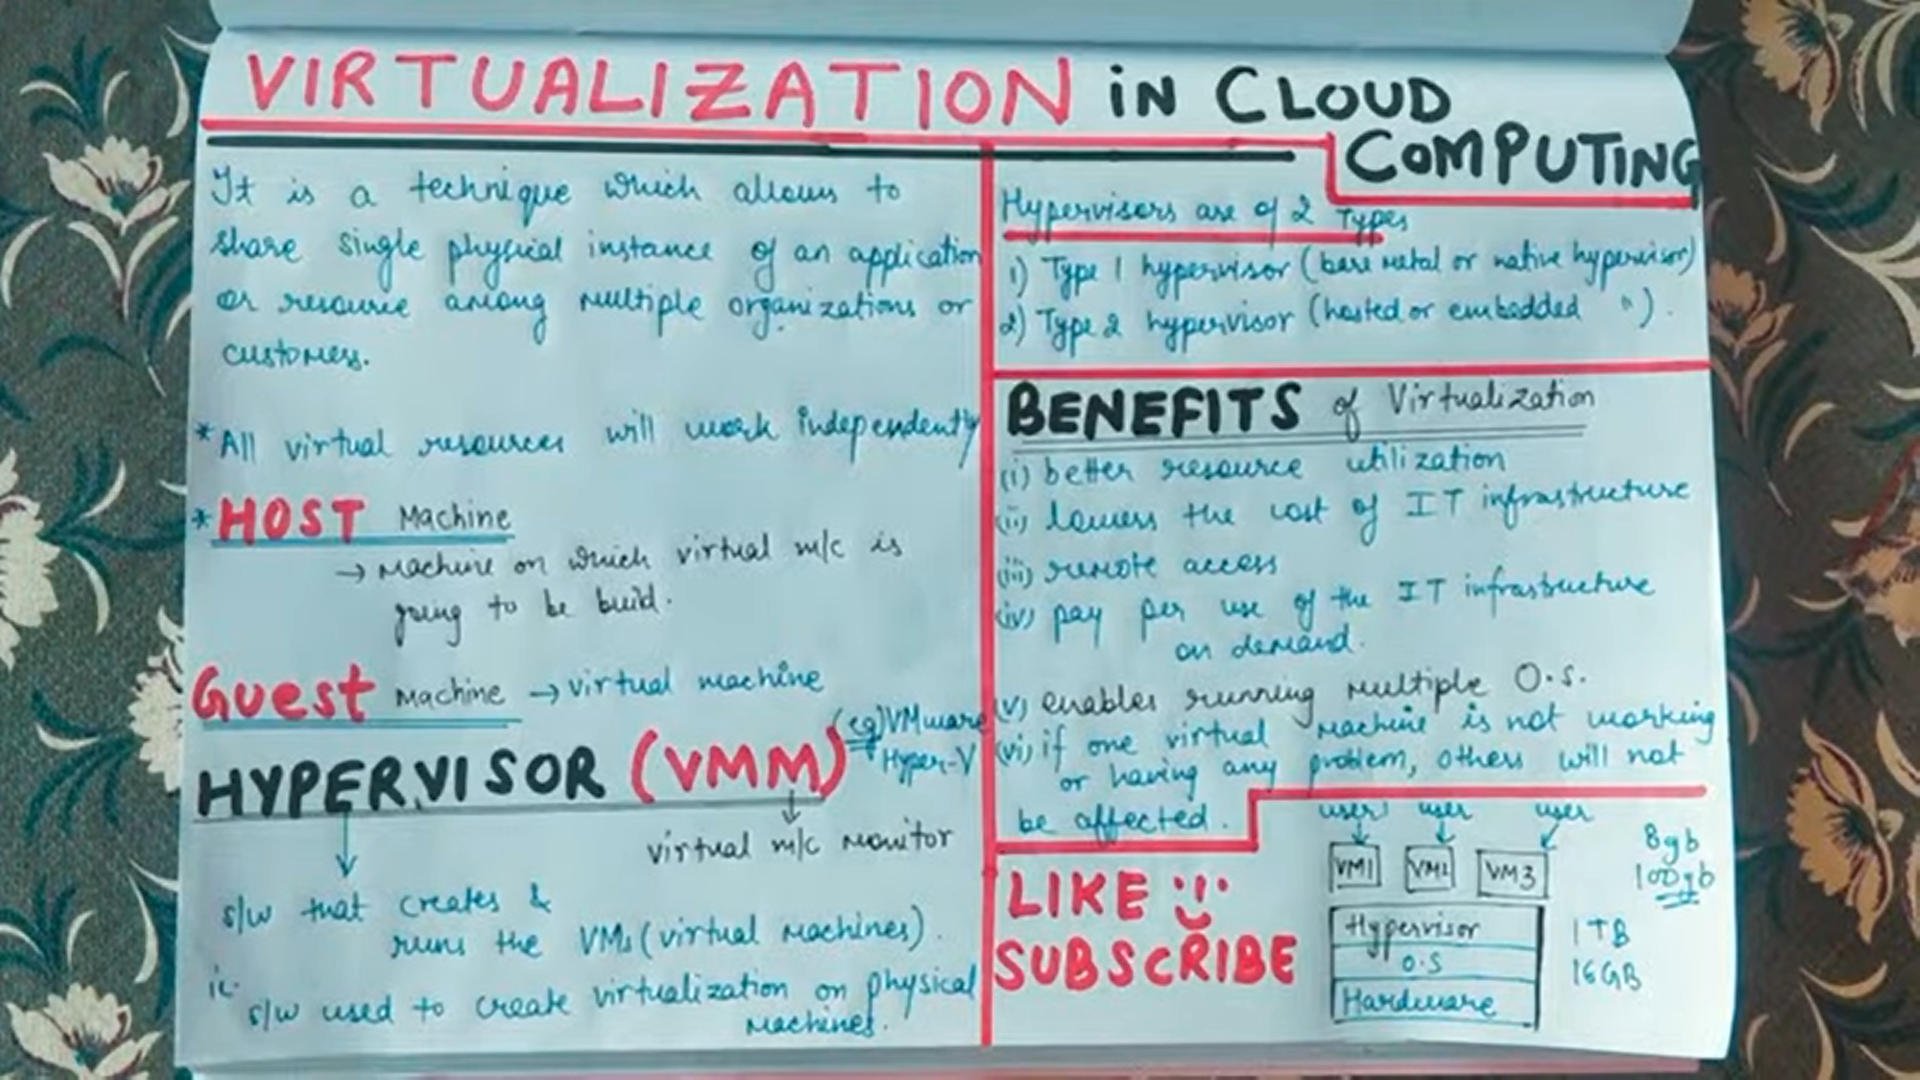 VIRTUALIZATION in CLOUD
COMPUTING
It is a technique which allows to
share single physical instance of an application
or resource among multiple organizations or
customers.
* All virtual resources will work independently
* HOST Machine
→ Machine on which virtual m/c is
going to be build.
Guest Machine → virtual machine
HYPERVISOR (VMM) (eg) VMware
Hyper-V
virtual m/c Monitor
s/w that creates &
runs the VMs (virtual Machines).
ie. s/w used to create virtualization on physical
Machines.
Hypervisors are of 2 Types
1) Type 1 hypervisor (bare metal or native hypervisor)
2) Type 2 hypervisor (hosted or embedded ").
BENEFITS of Virtualization
(i) better resource utilization
(ii) lowers the cost of IT infrastructure
(iii) remote access
(iv) pay per use of the IT infrastructure
on demand.
(v) enables running multiple O.S.
(vi) if one virtual Machine is not working
or having any problem, others will not
be affected.
LIKE
SUBSCRIBE
user user user
VM1 VM2 VM3
8gb
100gb
Hypervisor
O.S
Hardware
1TB
16GB